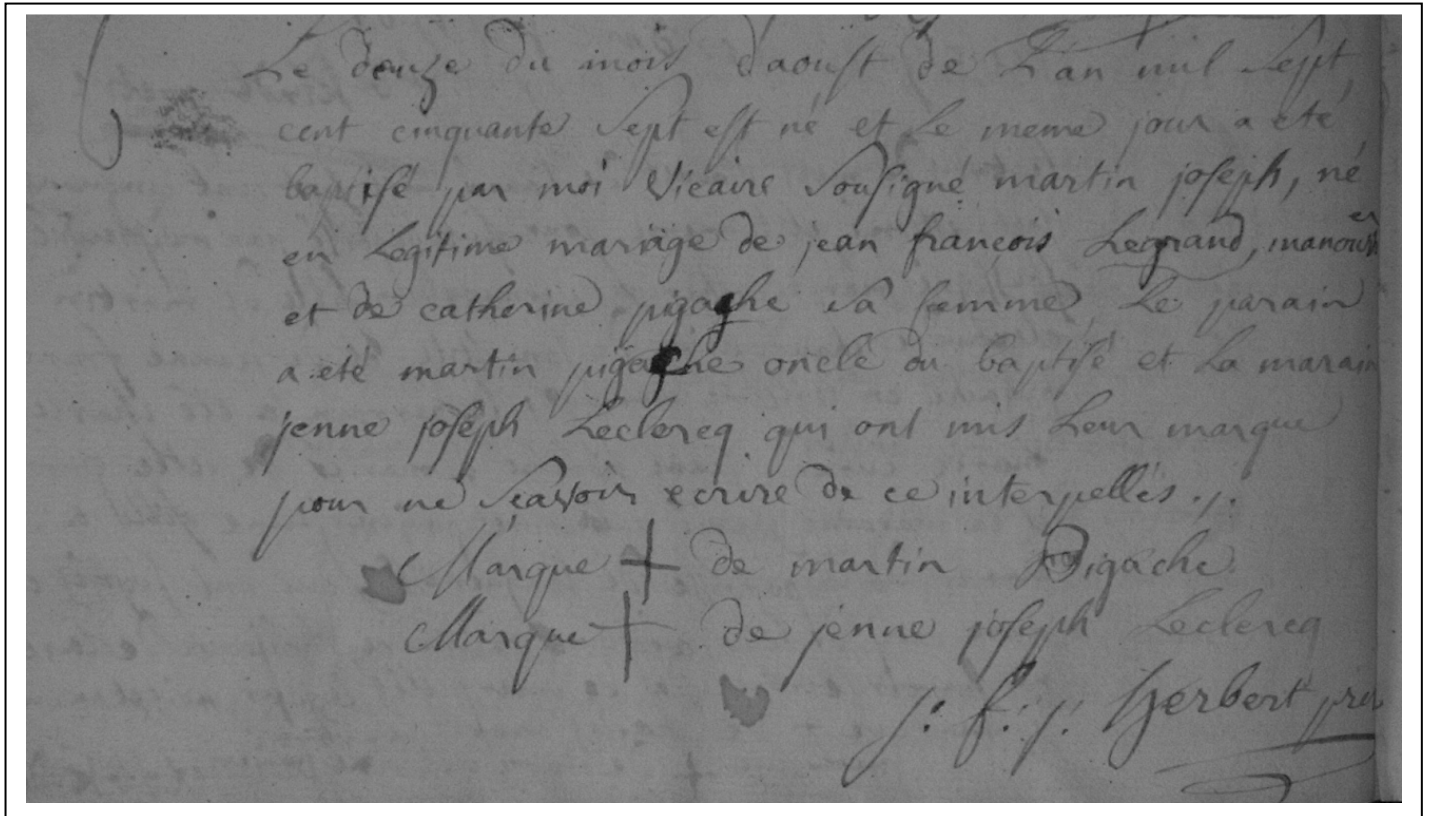 Le douze du mois d'aoust de L'an mil sept
cent cinquante sept est né et Le meme jour a eté
baptisé par moi Vicaire sousigné martin joseph, né
en Legitime mariage de jean francois Legrand, manouvrier
et de catherine pigache sa femme, Le parain
a eté martin pigache oncle du baptisé et La marain
jenne joseph Leclercq qui ont mis Leur marque
pour ne scavoir ecrire de ce interpellés ./.
Marque + de martin Pigache
Marque + de jenne joseph Leclercq
j: f: j: herbert